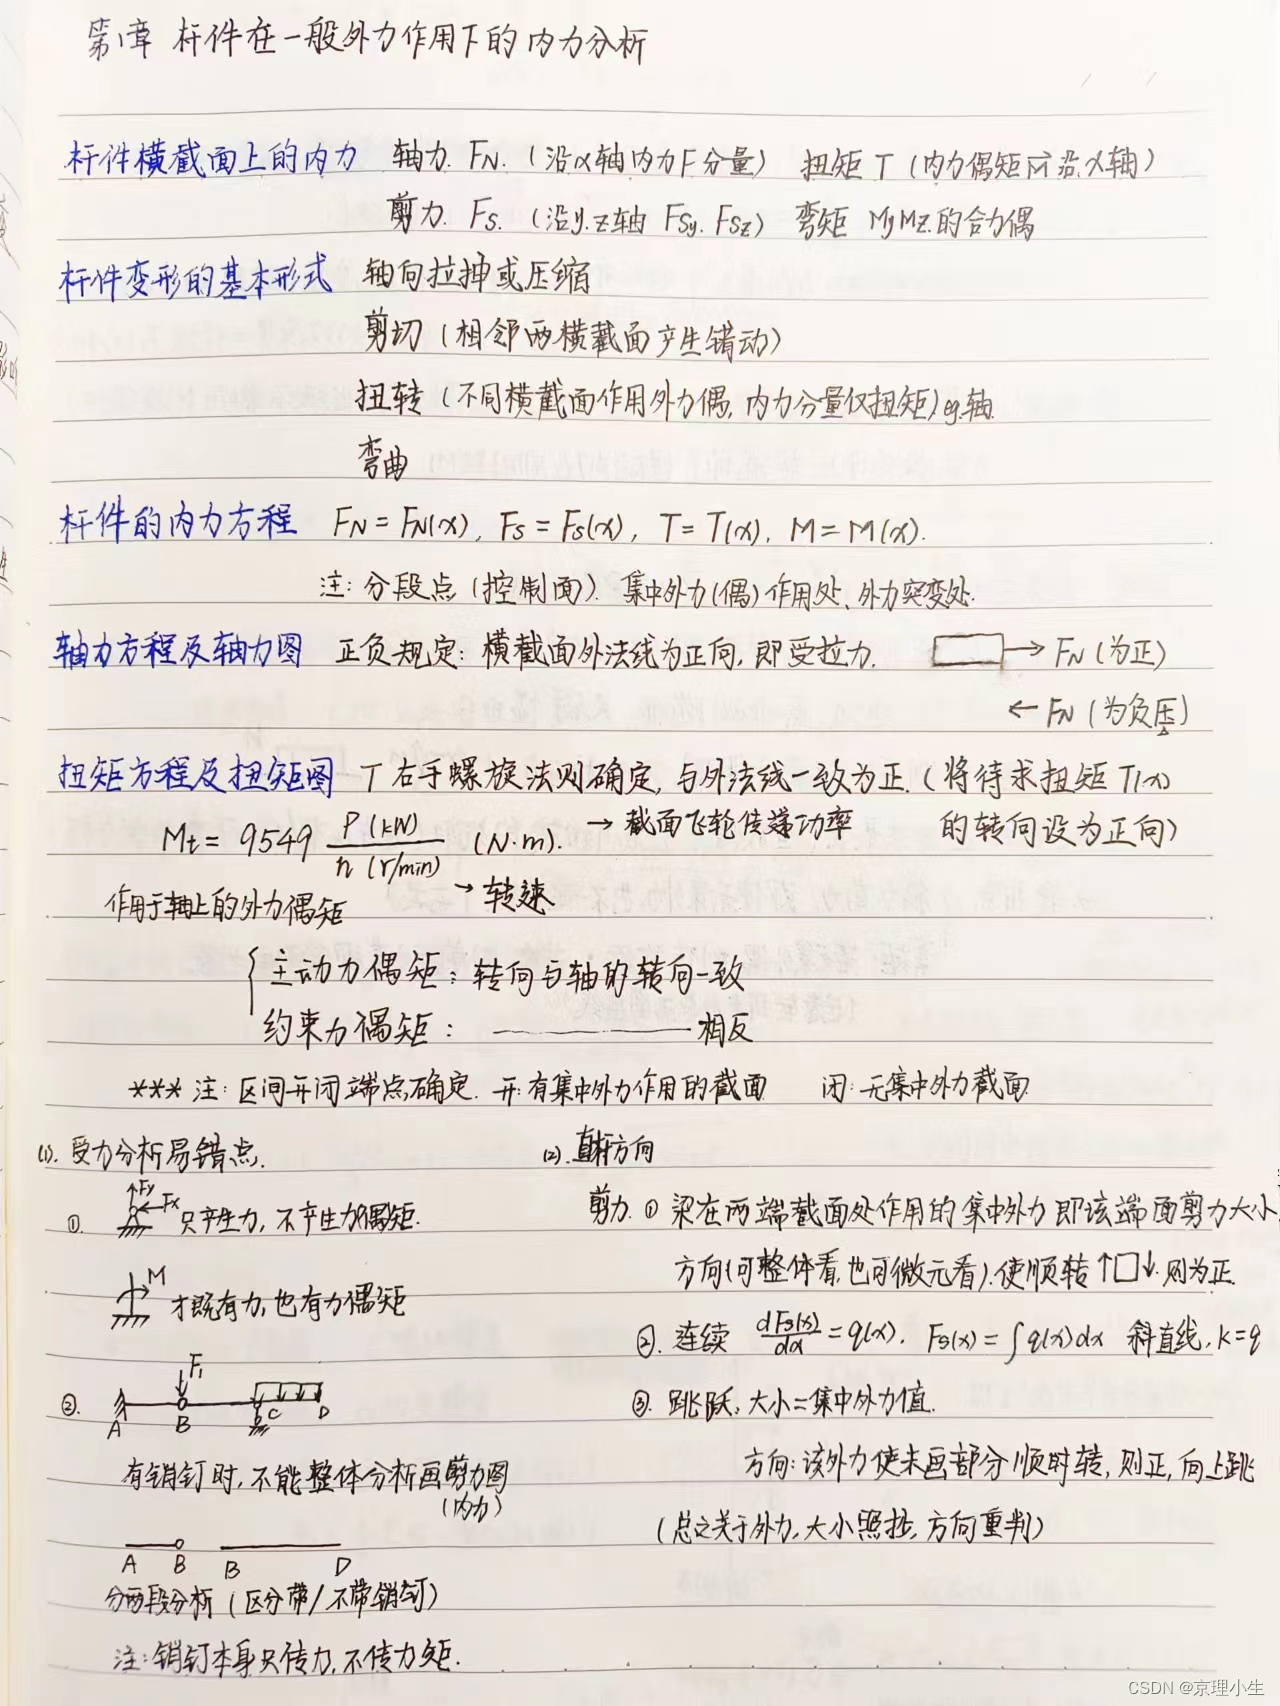 第1章 杆件在一般外力作用下的内力分析
杆件横截面上的内力 轴力 FN. (沿x轴内力F分量) 扭矩 T (内力偶矩 沿x轴)
剪力. Fs. (沿y.z轴 FSy. FSz) 弯矩 My Mz 的合力偶
杆件变形的基本形式 轴向拉抻或压缩
剪切 (相邻两横截面产生错动)
扭转 (不同横截面作用外力偶, 内力分量仅扭矩) eg.轴
弯曲
杆件的内力方程 FN = FN(x), Fs = Fs(x), T = T(x), M = M(x).
注: 分段点 (控制面). 集中外力(偶)作用处、外力突变处.
轴力方程及轴力图 正负规定: 横截面外法线为正向, 即受拉力. → FN (为正)
← FN (为负压)
扭矩方程及扭矩图 T 右手螺旋法则确定, 与外法线一致为正. (将待求扭矩 T(x)
的转向设为正向)
Mt = 9549 P (kW) / n (r/min) (N·m). → 截面飞轮传递功率
→ 转速
作用于轴上的外力偶矩
主动力偶矩: 转向与轴的转向一致
约束力偶矩: ———— 相反
*** 注: 区间开闭端点确定. 开: 有集中外力作用的截面 闭: 无集中外力截面
(1). 受力分析易错点.
①. Fy Fx 只产生力, 不产生力偶矩.
M 才既有力, 也有力偶矩
②. F1 A B C D
有销钉时, 不能整体分析画剪力图
(内力)
A B B D
分两段分析 (区分带/不带销钉)
注: 销钉本身只传力, 不传力矩.
(2). 直杆方向
剪力. ① 梁在两端截面处作用的集中外力即该端面剪力大小,
方向(可整体看, 也可微元看). 使顺转 ↑□↓. 则为正.
②. 连续 dFs(x)/dx = q(x). Fs(x) = ∫q(x)dx 斜直线, k = q
③. 跳跃, 大小=集中外力值.
方向: 该外力使未画部分顺时转, 则正, 向上跳
(总之关于外力, 大小照拉, 方向重判)
CSDN @京理小生